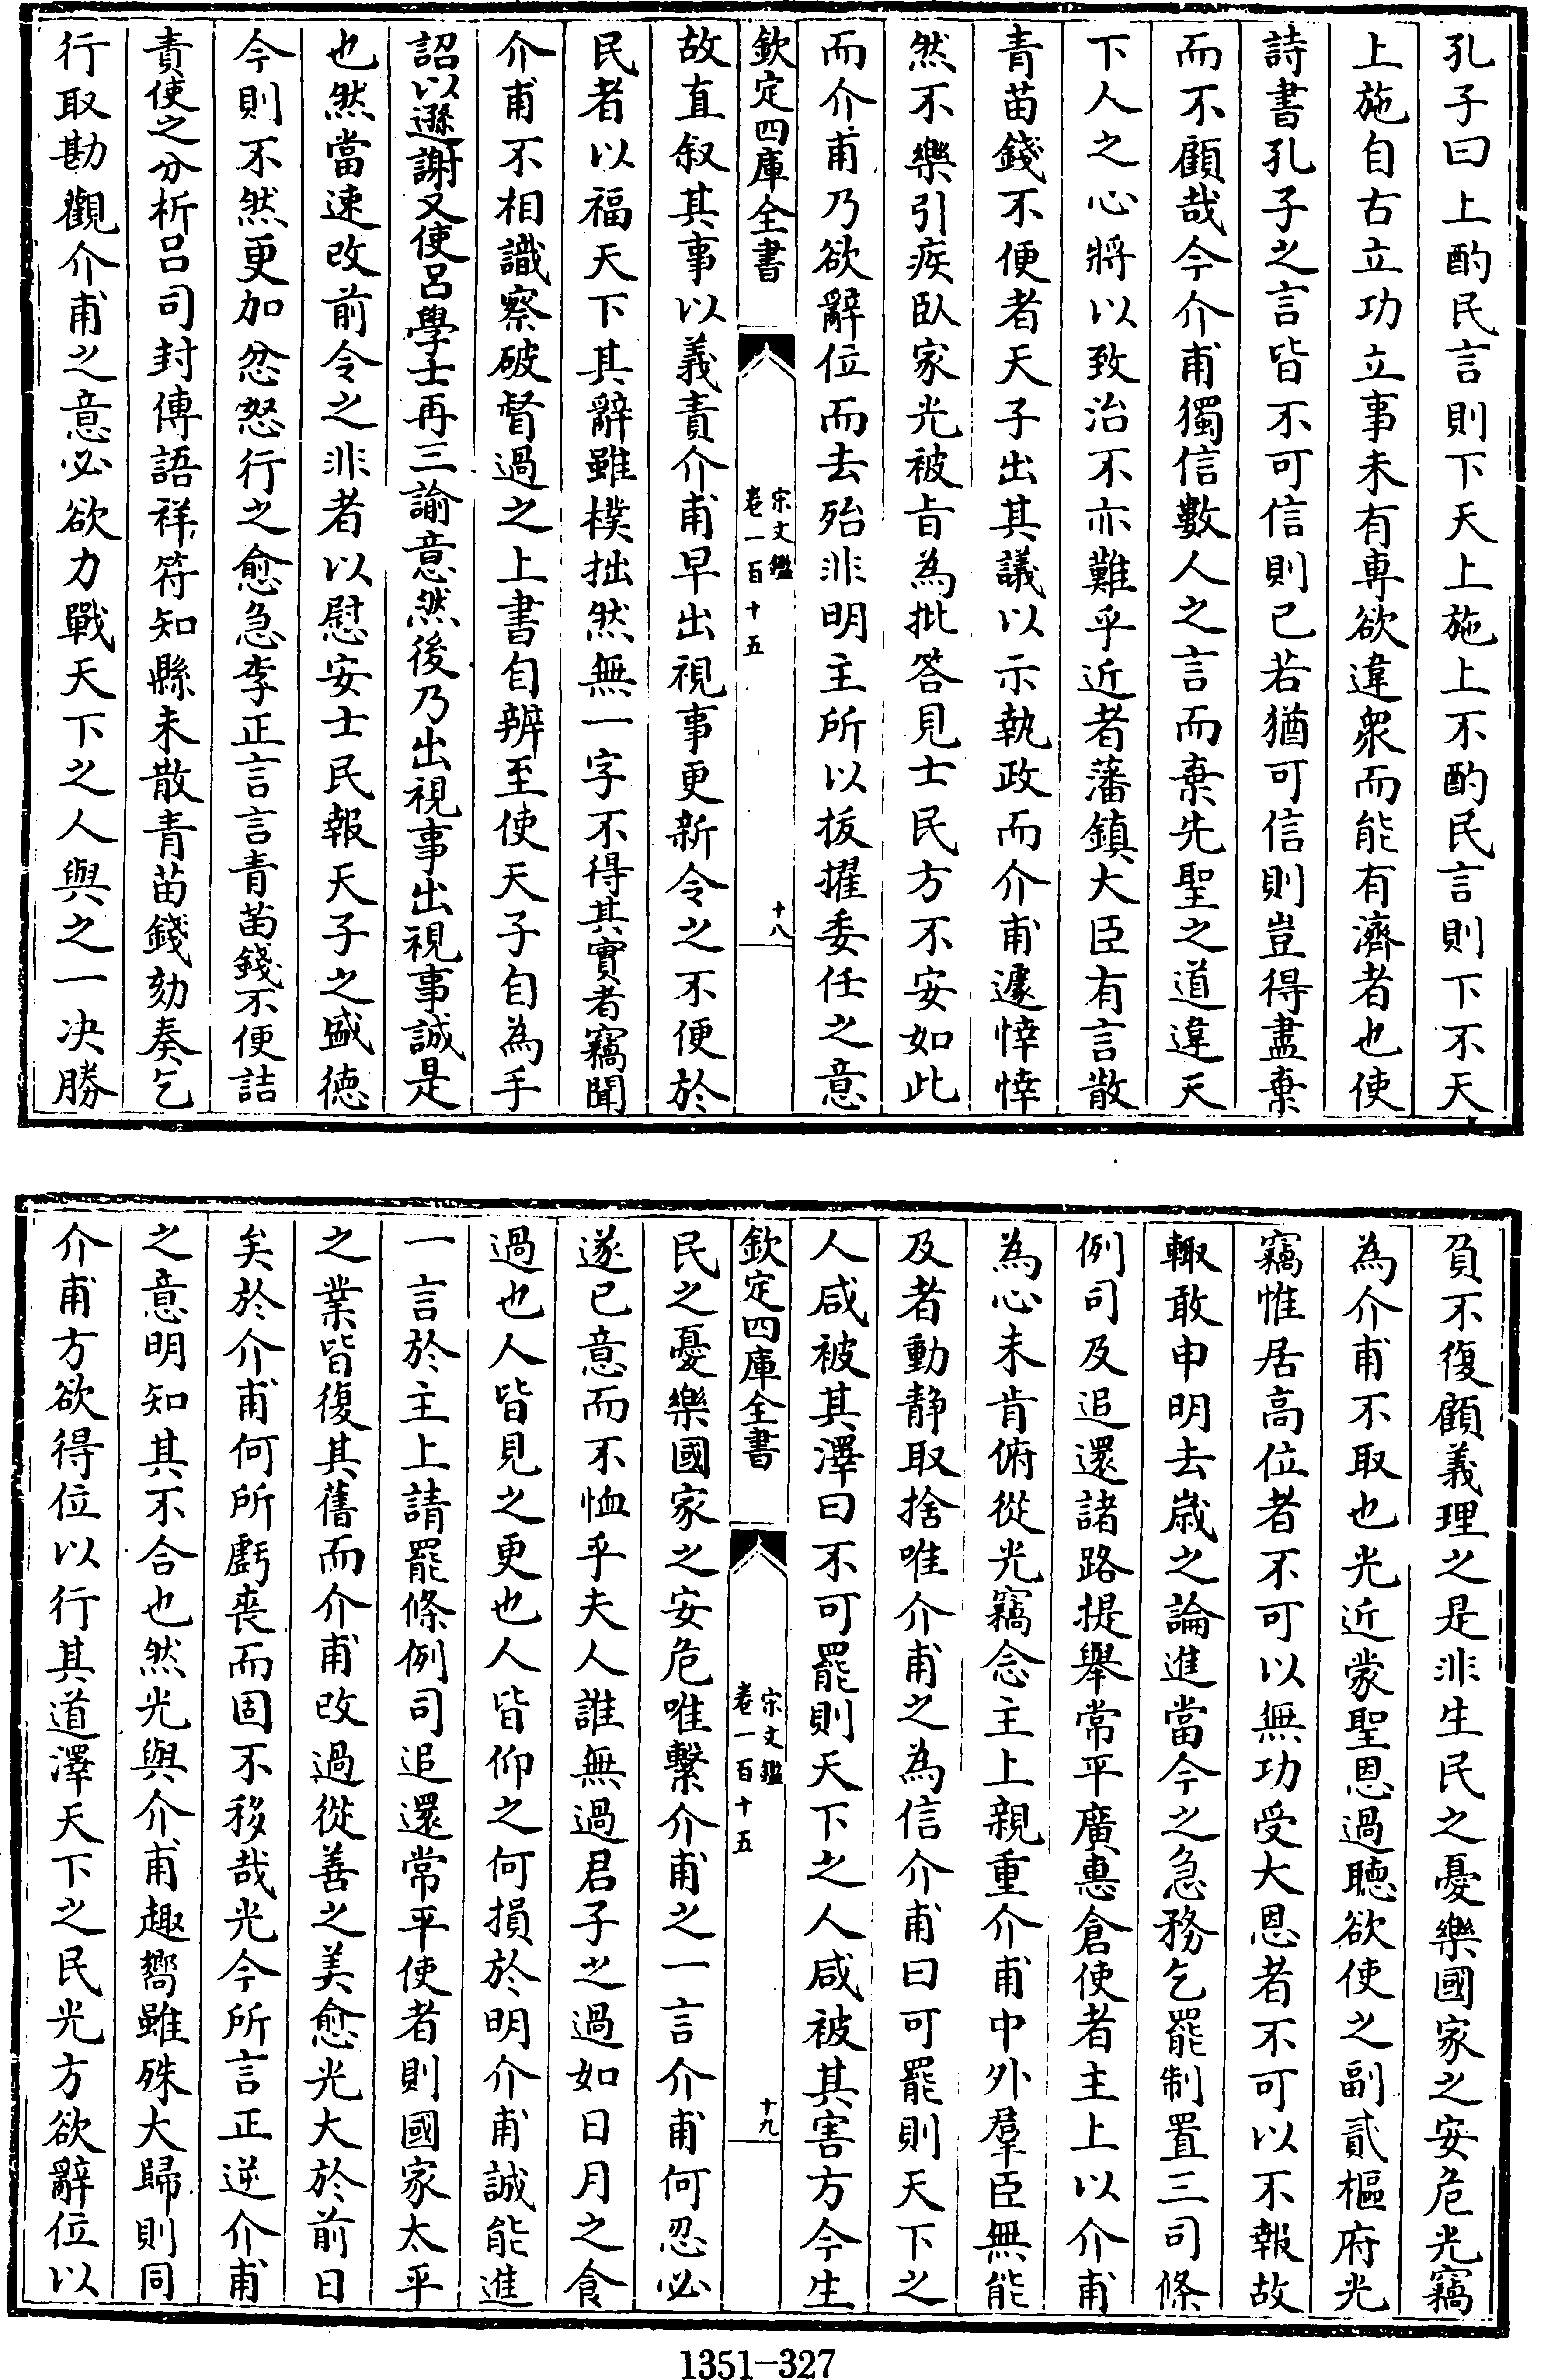 孔子曰上酌民言則下天上施上不酌民言則下不天
上施自古立功立事未有專欲違衆而能有濟者也使
詩書孔子之言皆不可信則已若猶可信則豈得盡棄
而不顧哉今介甫獨信數人之言而棄先聖之道違天
下人之心將以致治不亦難乎近者藩鎮大臣有言散
青苗錢不便者天子出其議以示執政而介甫遽悻悻
然不樂引疾卧家光被㫖為批答見士民方不安如此
而介甫乃欲辭位而去殆非明主所以拔擢委任之意
欽定四庫全書
宋文鑑
卷一百十五
十八
故直叙其事以義責介甫早出視事更新令之不便於
民者以福天下其辭雖樸拙然無一字不得其實者竊聞
介甫不相識察破督過之上書自辨至使天子自為手
詔以遜謝又使呂學士再三諭意然後乃出視事出視事誠是
也然當速改前令之非者以慰安士民報天子之盛徳
今則不然更加忿怒行之愈急李正言言青苗錢不便詰
責使之分析呂司封傳語祥符知縣未散青苗錢劾奏乞
行取勘觀介甫之意必欲力戰天下之人與之一决勝
負不復顧義理之是非生民之憂樂國家之安危光竊
為介甫不取也光近蒙聖恩過聽欲使之副貳樞府光
竊惟居高位者不可以無功受大恩者不可以不報故
輙敢申明去歳之論進當今之急務乞罷制置三司條
例司及追還諸路提舉常平廣惠倉使者主上以介甫
為心未肯俯從光竊念主上親重介甫中外羣臣無能
及者動静取捨唯介甫之為信介甫曰可罷則天下之
人咸被其澤曰不可罷則天下之人咸被其害方今生
欽定四庫全書
宋文鑑
卷一百十五
十九
民之憂樂國家之安危唯繫介甫之一言介甫何忍必
遂已意而不恤乎夫人誰無過君子之過如日月之食
過也人皆見之更也人皆仰之何損於明介甫誠能進
一言於主上請罷條例司追還常平使者則國家太平
之業皆復其舊而介甫改過從善之美愈光大於前日
矣於介甫何所虧喪而固不移哉光今所言正逆介甫
之意明知其不合也然光與介甫趣嚮雖殊大歸則同
介甫方欲得位以行其道澤天下之民光方欲辭位以
1351-327